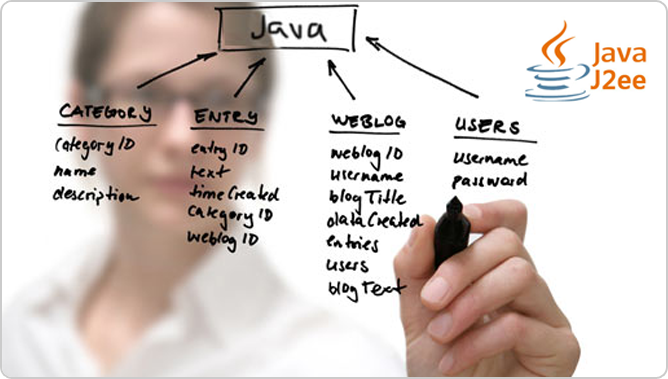 Java
Java
J2ee
CATEGORY
category ID
name
description
ENTRY
entry ID
text
timeCreated
category ID
weblog ID
WEBLOG
weblog ID
username
blogTitle
dataCreated
entries
users
blogText
USERS
username
password